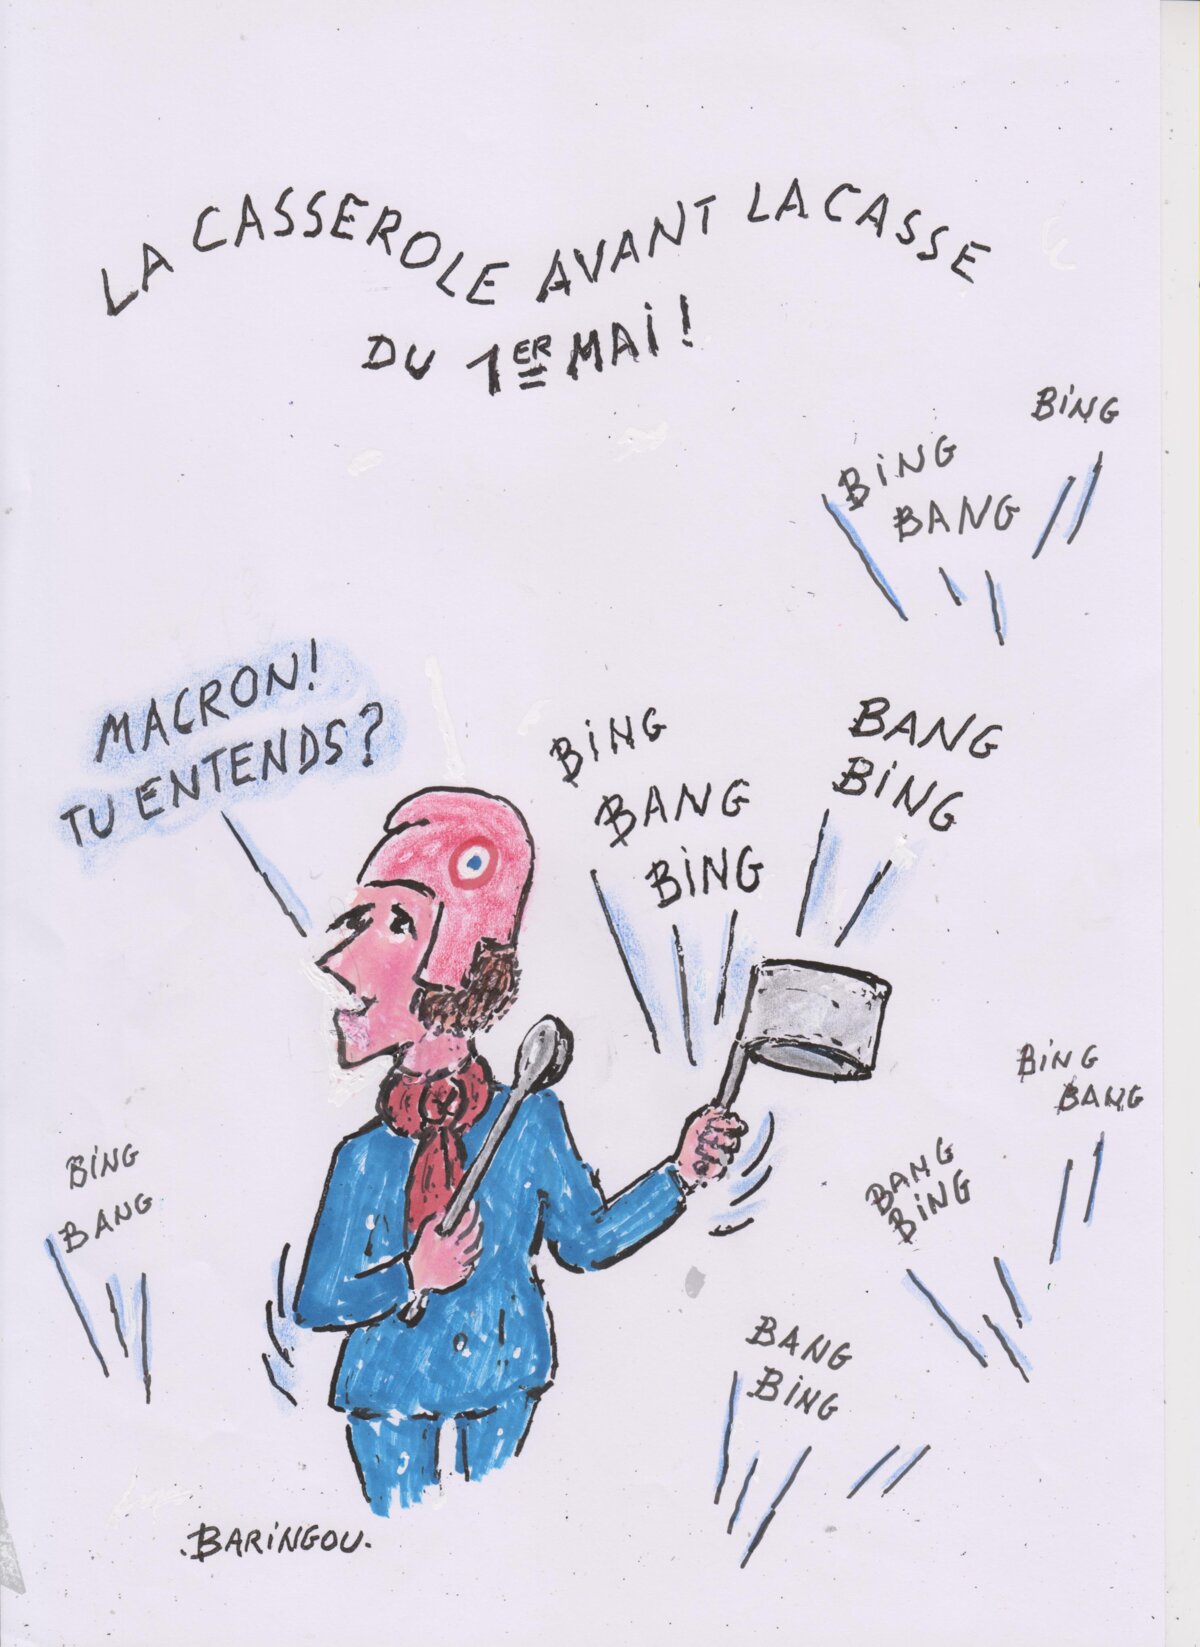 LA CASSEROLE AVANT LA CASSE
DU 1ER MAI!
BING
BING
BANG
MACRON!
TU ENTENDS?
BING
BANG
BING
BANG
BING
BING
BANG
BING
BANG
BANG
BING
BANG
BING
.BARINGOU.